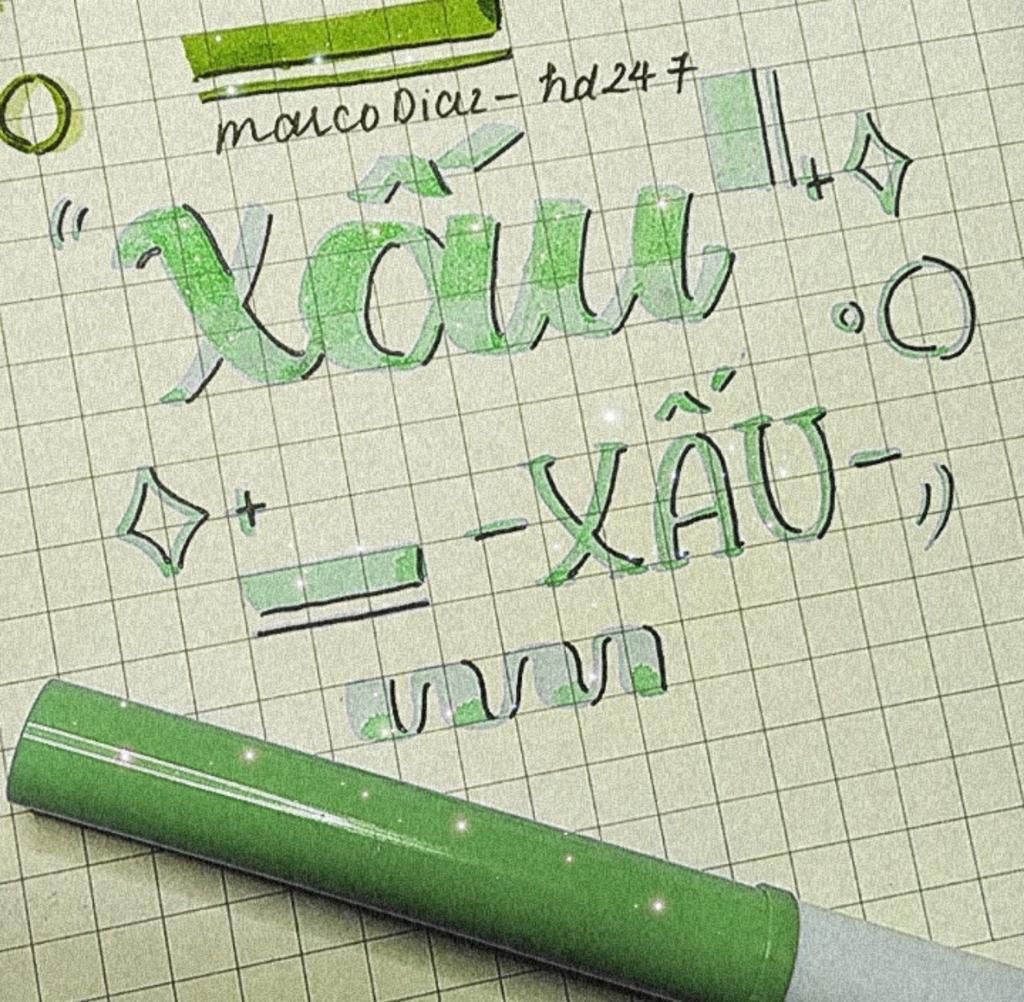 Marco Diaz - hd247
"xấu
- XẤU - "